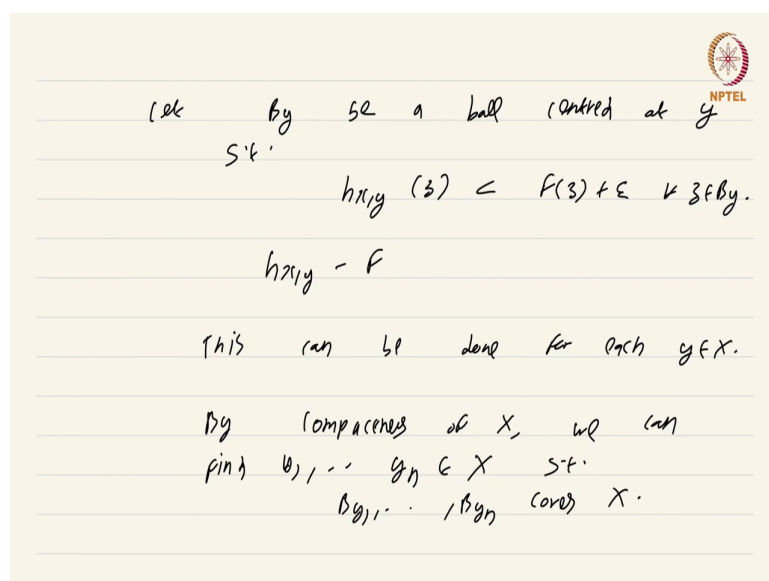 NPTEL
Let By be a ball centred at y
s.t.
hx,y (z) < F(z) + ε ∀ z ∈ By.
hx,y - F
This can be done for each y ∈ X.
By compactness of X, we can
find y1, .. yn ∈ X s.t.
By1, . . , Byn covers X.